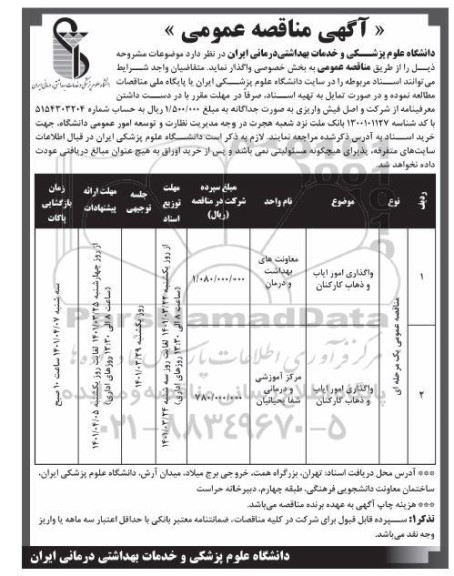 « آگهی مناقصه عمومی »
دانشگاه علوم پزشکی و خدمات بهداشتی درمانی ایران
دانشگاه علوم پزشکی و خدمات بهداشتی‌درمانی ایران در نظر دارد موضوعات مشروحه
ذیل را از طریق مناقصه عمومی به بخش خصوصی واگذار نماید. متقاضیان واجد شرایط
می توانند اسناد مربوطه را در سایت دانشگاه علوم پزشکی ایران یا پایگاه ملی مناقصات
مطالعه نموده و در صورت تمایل به تهیه اسناد، صرفاً در مهلت مقرر با در دست داشتن
معرفینامه از شرکت و اصل فیش واریزی به صورت جداگانه به مبلغ ۱/۵۰۰/۰۰۰ ریال به حساب شماره ۵۱۵۴۳۰۳۲۰۴
با کد شناسه ۱۳۰۰۱۰۱۱۲۷ بانک ملت نزد شعبه هجرت در وجه مدیریت نظارت و توسعه امور عمومی دانشگاه، جهت
خرید اسناد به آدرس ذکر شده مراجعه نمایند. لازم به ذکر است دانشگاه علوم پزشکی ایران در قبال اطلاعات
سایت‌های متفرقه، پذیرای هیچگونه مسئولیتی نمی باشد و پس از خرید اوراق به هیچ عنوان مبالغ دریافتی عودت
داده نخواهد شد.
ردیف
نوع
موضوع
نام واحد
مبلغ سپرده
شرکت در مناقصه
(ریال)
مهلت
توزیع
اسناد
جلسه
توجیهی
مهلت ارائه
پیشنهادات
زمان
بازگشایی
پاکات
۱
مناقصه عمومی یک مرحله ای
واگذاری امور ایاب
و ذهاب کارکنان
معاونت های
بهداشت
و درمان
۱/۰۸۰/۰۰۰/۰۰۰
از روز یکشنبه ۱۴۰۱/۰۳/۲۲ لغایت روز سه شنبه ۱۴۰۱/۰۳/۲۴
(ساعت ۸ الی ۱۳:۳۰ روزهای اداری)
روز یکشنبه ۱۴۰۱/۰۳/۲۹
از روز چهارشنبه ۱۴۰۱/۰۳/۲۵ لغایت روز یکشنبه ۱۴۰۱/۰۴/۰۵
(ساعت ۸ الی ۱۳:۳۰ روزهای اداری)
سه شنبه ۱۴۰۱/۰۴/۰۷ ساعت ۱۰ صبح
۲
واگذاری امور ایاب
و ذهاب کارکنان
مرکز آموزشی
و درمانی
شفا یحیائیان
۷۸۰/۰۰۰/۰۰۰
ParsNamadData
مرکز فرآوری اطلاعات پارس نماد داده ها
پایگاه اطلاع رسانی مناقصه و مزایده
۰۲۱-۸۸۳۴۹۶۷۰-۵
*** آدرس محل دریافت اسناد: تهران، بزرگراه همت، خروجی برج میلاد، میدان آرش، دانشگاه علوم پزشکی ایران،
ساختمان معاونت دانشجویی فرهنگی، طبقه چهارم، دبیرخانه حراست
*** هزینه چاپ آگهی به عهده برنده مناقصه می‌باشد.
تذکر۱: سپرده قابل قبول برای شرکت در کلیه مناقصات، ضمانتنامه معتبر بانکی با حداقل اعتبار سه ماهه یا واریز
وجه نقد می‌باشد.
دانشگاه علوم پزشکی و خدمات بهداشتی درمانی ایران